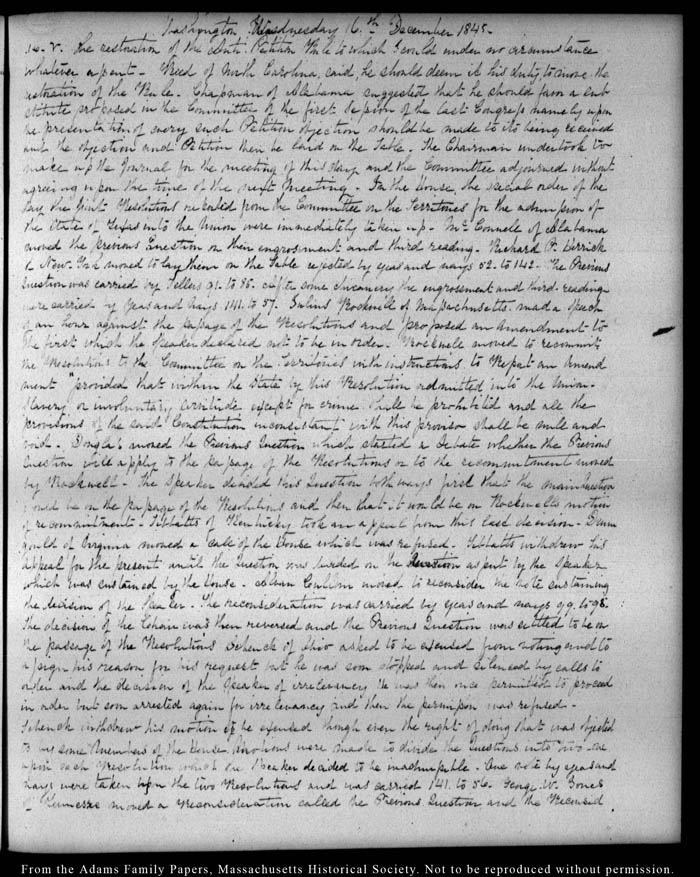 Washington Wednesday 16.th December 1845.
14. V. the restoration of the Anti Petition Rule to which I could under no circumstance
whatever assent. Reed of North Carolina, said he should deem it his duty to move the
restoration of the Rule. Chapman of Alabama suggested that he should favor a sub
stitute proposed in the Committee of the first Session of the last Congress namely upon
the presentation of every such Petition objection should be made to its being received
and the objection and Petition then be laid on the Table. The Chairman undertook to
make up the Journal for the meeting of this day and the Committee adjourned without
agreeing upon the time of the next meeting. In the House, the special order of the
day the joint Resolutions reported from the Committee on the Territories for the admission of
the State of Texas into the Union were immediately taken up. Mc Connell of Alabama
moved the previous Question on their engrossment and third reading. Richard P. Herrick
of New York moved to lay them on the Table rejected by yeas and nays 52. to 142. The Previous
Question was carried by Tellers 91. to 56. after some chicanery the engrossment and third reading
were carried by Yeas and Nays. 141. to 57. Julius Rockwell of Massachusetts made a speech
of an hour against the passage of the Resolutions and proposed an Amendment to
the first which the Speaker declared not to be in order. Rockwell moved to recommit
the Resolutions to the Committee on the Territories with instructions to Report an Amend
ment "provided that within the State by this Resolution admitted into the Union.
Slavery or involuntary Servitude except for crime shall be prohibited and all the
provisions of the said Constitution inconsistant with this proviso shall be null and
void. Douglass moved the Previous Question which started a Debate whether the Previous
Question will apply to the passage of the Resolutions or to the recommitment moved
by Rockwell. The Speaker decided this Question both ways first that the main Question
would be on the passage of the Resolutions and then that it would be on Rockwells motion
of recommitment. Tibbatts of Kentucky took an appeal from this last decision.
of Virginia moved a call of the House which was refused. Tibbatts withdrew his
Appeal for the present until the Question was decided on the Question as put by the Speaker
which was sustained by the House. Alvan Cullom moved to reconsider the vote sustaining
the decision of the Speaker. The reconsideration was carried by yeas and nays 99. to 98.
the decision of the Chair was then reversed and the Previous Question was settled to be on
the passage of the Resolutions Schenck of Ohio asked to be excused from voting and to
assign his reason for his request but he was soon stopped and silenced by calls to
order and the decision of the Speaker of irrelevancy He was then once permitted to proceed
in order but soon arrested again for irrelevancy and then the permission was refused.
Schenck withdrew his motion to be excused though even the right of doing that was objected
to by some Members of the House. Motions were made to divide the Questions into two one
upon each Resolution which the Speaker decided to be inadmissible. One vote by yeas and
nays were taken upon the two Resolutions and was carried 141. to 56. George W. Jones
of Tennessee moved a reconsideration called the Previous Question and the
From the Adams Family Papers, Massachusetts Historical Society. Not to be reproduced without permission.